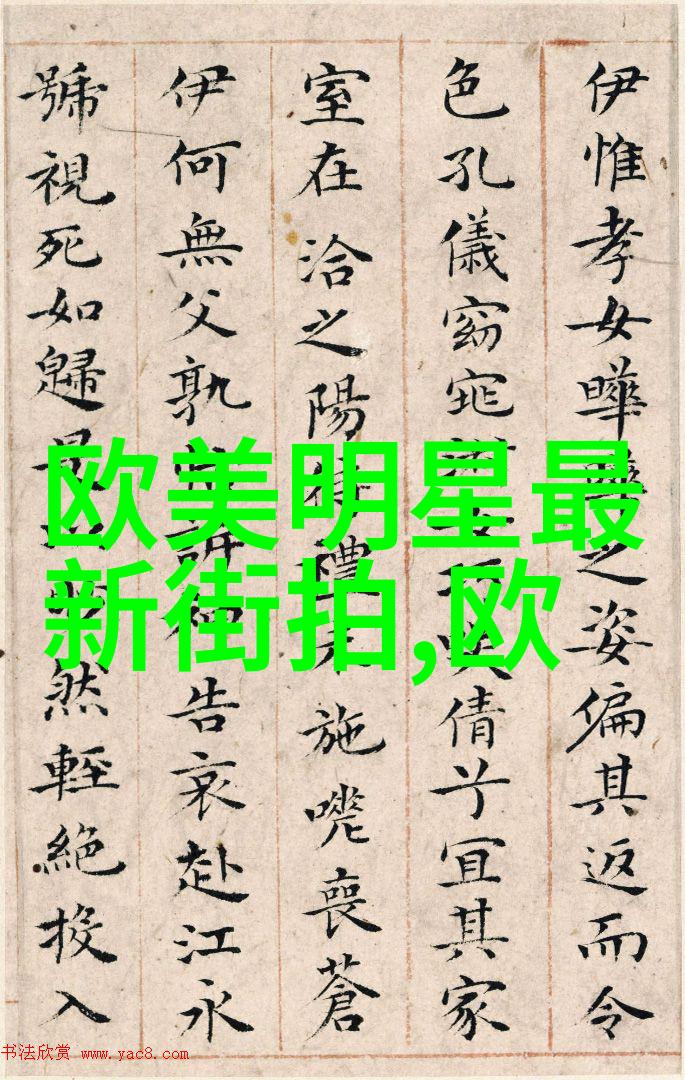 伊惟孝女曄曄之姿偏其返而令
色孔儀窈窕淑女巧笑倩兮宜其家
室在洽之陽待禮未施嗟喪蒼
伊何無父孰訴告哀赴江永
號視死如歸是然輕絕投入
欧美明星最
新街拍,欧
书法欣赏 www.yac8.com